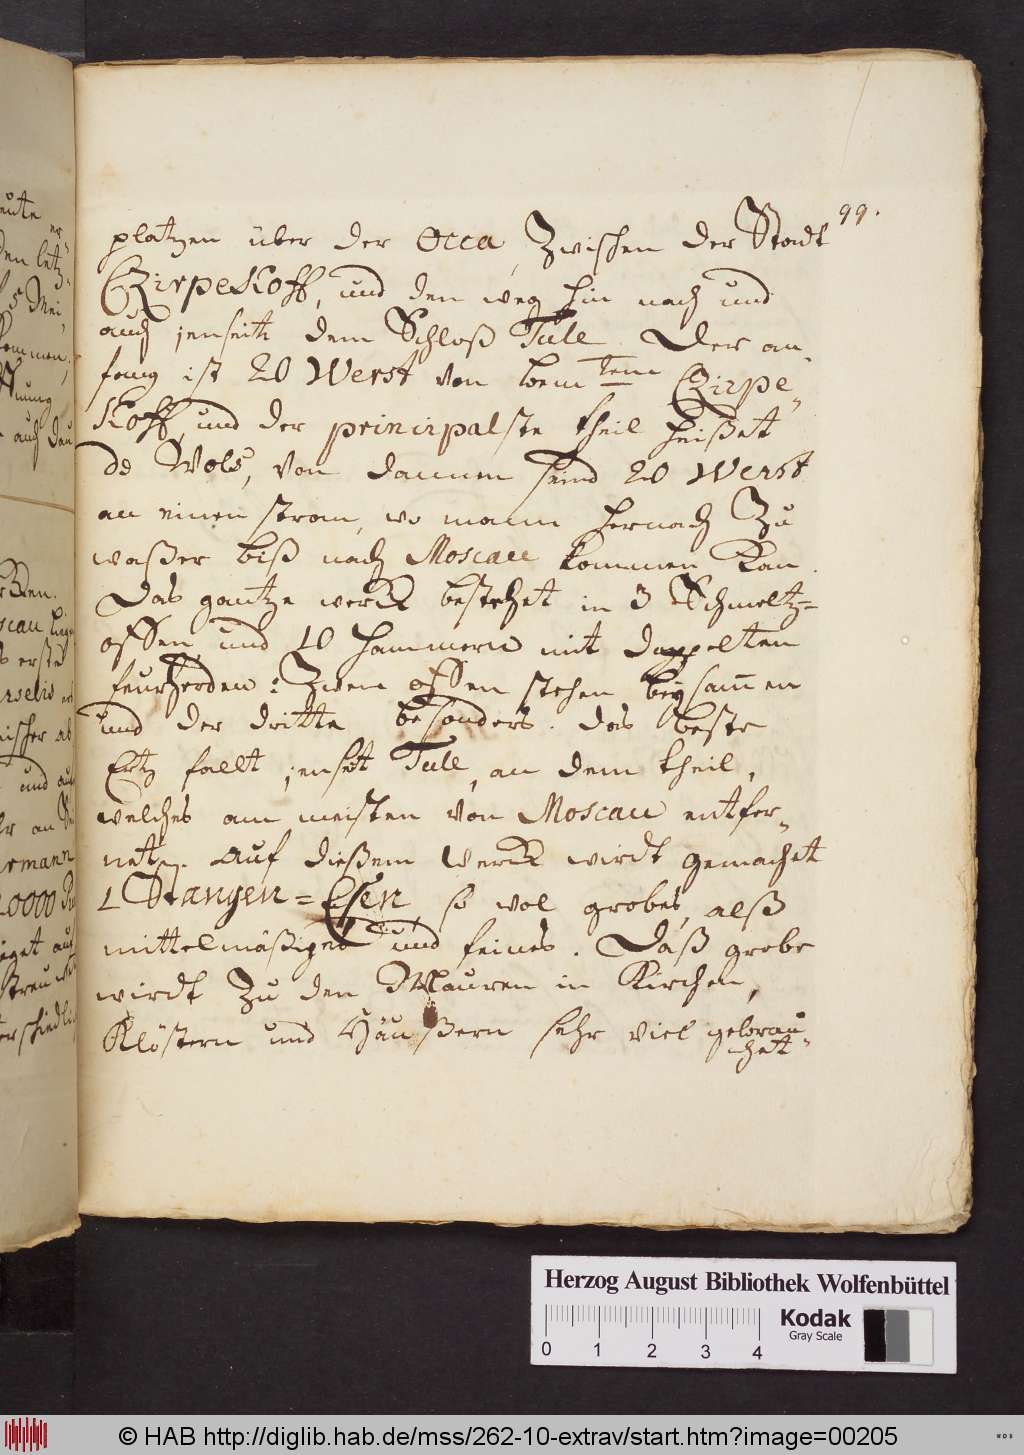 99.
platzen über der Occa, Zwischen der Stadt
Czirpeskoff, und den weg hin nach und
auch jenseits dem Schloß Tule. Der an-
fang ist 20 Werst von bem tem Czirpe-
koff, und der principalste theil heißet
de Wols, von dannen seind 20 Werst
an einen strom, wo mann hernach Zu
waßer biß nach Moscau kommen kan.
Das gantze werck bestehet in 3 Schmeltz=
offen, und 10 Hammern mit doppelten
feurherden: Zwen offen stehen beysam̅en
und der dritte besonders. das beste
Ertz fallt jenseit Tule, an dem theil,
welches am meisten von Moscau entfer-
net. Auf dießem Werck wirdt gemachet
1 Stangen=Eisen, so wol grobes, alß
mittelmäßiges und feines. Daß grobe
wirdt Zu den Mauren in Kirchen,
Klöstern und Häußern sehr viel gebrau-
chet
Herzog August Bibliothek Wolfenbüttel
Kodak
Gray Scale
0 1 2 3 4
© HAB http://diglib.hab.de/mss/262-10-extrav/start.htm?image=00205